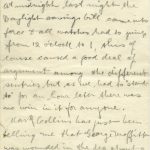 At midnight last night the
Daylight savings bill came into
force & all watches had to going
from 12 oclock to 1, this of
course caused a good deal of
argument among the different
sentries, but as we had to stand
to for an hour later there was
no win in it for anyone.
Harry Collins has just been
telling me that George Driffitt
was wounded in the leg